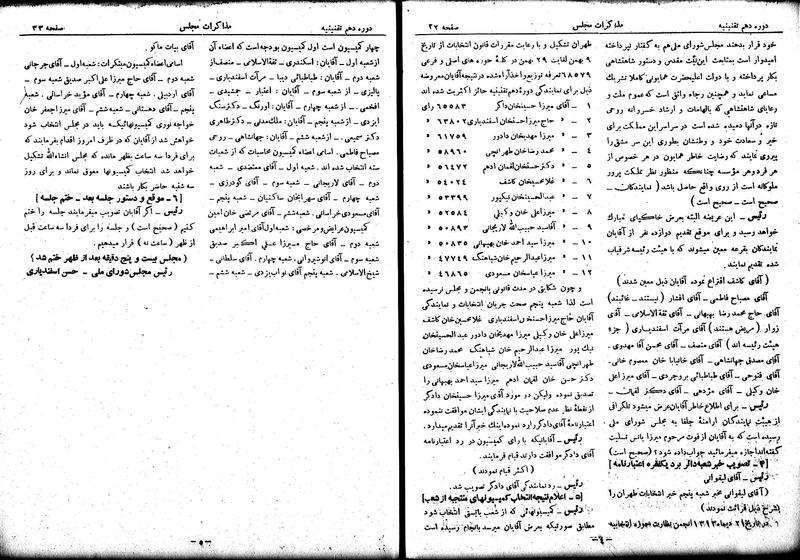 دوره دهم تقنینیه
مذاکرات مجلس
صفحه ۳۲
خود قرار بدهند مجلس شورای ملی هم به گفتار نپرداخته
امیدوار است بمتابعت این نیت مقدس و دستور شاهنشاهی
بکار پرداخته و با دولت اعلیحضرت همایونی کاملا تشریک
مساعی نماید و همچنین رجاء واثق است که عموم ملت و
رعایای شاهنشاهی که باالهامات و ارشاد خسروانه روحی
تازه درآنها دمیده شده است در سراسر این مملکت برای
خیر و سعادت خود و وطنشان بطوری این سر مشق را
پیروی نمایند که رضایت خاطر همایون در هر خصوص از
هر فرد و هر مؤسسه چنانکه منظور نظر مملکت پرور
ملوکانه است از روی واقع حاصل باشد ( نمایندگان ـ
صحیح است ـ صحیح است )
رئیس ـ این عریضه البته بعرض خاکپای مبارک
خواهد رسید و برای موقع تقدیم دوازده نفر از آقایان
نمایندگان بقرعه معین میشوند که با هیئت رئیسه شرفیاب
شده تقدیم نمایند .
( آقای کاشف اقتراع نموده آقایان ذیل معین شدند )
آقای مصباح فاطمی ـ آقای افشار ( نیستند ـ غائبند)
آقای حاج محمد رضا بهبهانی ـ آقای ثقة الاسلامی ـ آقای
زوار ( مریض هستند ) آقای مرآت اسفندیاری ( جزء
هیئت رئیسه اند ) آقای منصف ـ آقای محسن آقا مهدوی ـ
آقای مصدق جهانشاهی ـ آقای خانبابا خان معصوم خانی ـ
آقای فتوحی ـ آقای طباطبائی بروجردی ـ آقای میرزا علی
خان وکیلی ـ آقای مژدهی ـ آقای دکتر لقمان ـ
رئیس ـ برای اطلاع خاطر آقایان عرض میشود تلگرافی
از هیئت نمایندگان ارامنه جلفا به مجلس شورای ملی
رسیده است که به آقایان از فوت مرحوم میرزا یانس تسلیت
گفته اند اجازه میفرمائید جواب داده شود؟ (صحیح است)
[۴ـ تصویب خبر شعبه دائر برد یکفقره اعتبارنامه ]
رئیس ـ آقای لیقوانی
( آقای لیقوانی مخبر شعبه پنجم خبر انتخابات طهران را
بشرح ذیل قرائت نمودند )
در تاریخ ۲۱ دیماه ۱۳۱۳ انجمن نظارت حوزه انتخابیه
طهران تشکیل و با رعایت مقررات قانون انتخابات از تاریخ
۹ بهمن لغایت ۲۹ بهمن در کلیه حوزه های اصلی و فرعی
۶۸۵۷۹ تعرفه توزیع و اخذ آراء شده در نتیجه آقایان معروضه
ذیل برای نمایندگی دوره دهم تقنینیه حائز اکثریت شده اند
۱ ـ آقای میرزا حسینخان دادگر ۶۵۸۴۳ رای
۲ ـ « حاج میرزا حسنخان اسفندیاری ۶۳۸۰۲ «
۳ ـ « میرزا مهدیخان دادور ۶۱۷۵۹ «
۴ ـ « محمد رضا خان طهرانچی ۵۸۹۶۰ «
۵ ـ « دکتر حسنخان لقمان ادهم ۵۶۴۷۲ «
۶ ـ « غلامحسین خان کاشف ۵۴۰۲۴ «
۷ ـ « عبدالحسین خان نیکپور ۵۳۳۹۹ «
۸ ـ « میرزا علی خان وکیلی ۵۲۵۸۴ «
۹ ـ « آقاسید حبیب الله لاریجانی ۵۰۸۹۳ «
۱۰ ـ « میرزا سید احمد خان بهبهانی ۵۰۸۳۵ «
۱۱ ـ « میرزا عبدالرحیم خان شباهنگ ۴۷۷۴۹ «
۱۲ ـ « میرزا عباسخان مسعودی ۴۶۸۶۵ «
و چون شکایتی در مدت قانونی بانجمن و مجلس نرسیده
است لذا شعبه پنجم صحت جریان انتخابات و نمایندگی
آقایان حاج میرزا حسنخان اسفندیاری غلامحسین خان کاشف
میرزا علی خان وکیلی میرزا مهدیخان دادور عبدالحسینخان
نیک پور میرزا عبدالرحیم خان شباهنگ محمد رضا خان
طهرانچی آقاسید حبیب الله لاریجانی میرزا عباسخان مسعودی
دکتر حسن خان لقمان ادهم میرزا سید احمد بهبهانی را
تصدیق نموده ولیکن در مورد آقای میرزا حسینخان دادگر
از نقطه نظر عدم صلاحیت با نمایندگی ایشان موافقت ننموده
اعتبارنامۀ آقای دادگر را رد نموده اینک خبر آنرا تقدیم میدارد .
رئیس ـ آقایانیکه با رای کمیسیون در رد اعتبارنامه
آقای دادگر موافقت دارند قیام فرمایند .
( اکثر قیام نمودند )
رئیس ـ رد نمایندگی آقای دادگر تصویب شد .
[۵ـ اعلام نتیجه انتخاب کمیسیونهای منتخبه از شعب]
رئیس ـ کمیسیونهائی که از شعب بایستی انتخاب شود
مطابق صورتیکه بعرض آقایان میرسد بانجام رسیده است
ـ ۴ ـ
دوره دهم تقنینیه
مذاکرات مجلس
صفحه ۳۳
چهار کمیسیون است اول کمیسیون بودجه است که اعضاء آن
از شعبه اول ـ آقایان : اسکندری ـ ثقة الاسلامی ـ منصف از
شعبه دوم ـ آقایان : طباطبائی دیبا ـ مرآت اسفندیاری ـ
بالیزی . از شعبه سوم ـ آقایان : اعتبار ـ جمشیدی ـ
افخمی . از شعبه چهارم ـ آقایان : اورنگ ـ دکتر سنگ
ایزدی ـ از شعبه پنجم ـ آقایان : ملک مدنی ـ دکتر طاهری
دکتر سمیعی . از شعبه ششم ـ آقایان : جهانشاهی ـ روحی
مصباح فاطمی . اسامی اعضاء کمیسیون محاسبات که از شعبات
سته انتخاب شده اند . شعبه اول ـ آقای معتضدی ـ شعبه
دوم ـ آقای لاریجانی ـ شعبه سوم ـ آقای گودرزی ـ
شعبه چهارم ـ آقای سهرابخان ساکنیان ـ شعبه پنجم
آقای مسعودی خراسانی . شعبه ششم ـ آقای مرتضی خان امین
کمیسیون عرایض و مرخصی : شعبه اول آقای امیر ابراهیمی
شعبه دوم ـ آقای حاج میرزا علی اکبر صدیق
شعبه سوم ـ آقای انوشیروانی . شعبه چهارم . آقای سلطانی ـ
شیخ الاسلامی . شعبه پنجم آقای نواب یزدی ـ شعبه ششم
آقای بیات ماکو .
اسامی اعضاء کمیسیون مبتکرات : شعبه اول ـ آقای جرجانی
شعبه دوم ـ آقای حاج میرزا علی اکبر صدیق شعبه سوم ـ
آقای اردبیلی . شعبه چهارم ـ آقای مؤید خراسانی . شعبه
پنجم ـ آقای دهستانی ـ شعبه ششم ـ آقای میرزا جعفر خان
خواجه نوری کمیسیونهائیکه باید در مجلس انتخاب شود
خواهش شد از آقایان که در ظرف امروز اقدام بفرمایند که
برای فردا سه ساعت بظهر مانده که مجلس انشاءالله تشکیل
خواهد شد انتخاب کمیسیونها معوق نماند و برای روز
سه شنبه حاضر بکار باشند
[۶ـ موقع و دستور جلسه بعد ـ ختم جلسه ]
رئیس ـ اگر آقایان تصویب میفرمایند جلسه را ختم
کنیم ( صحیح است ) و جلسه را برای فردا سه ساعت قبل
از ظهر ( ساعت نه ) قرار میدهیم .
( مجلس بیست و پنج دقیقه بعد از ظهر ختم شد )
رئیس مجلس شورای ملی ـ حسن اسفندیاری
ـ ۵ ـ